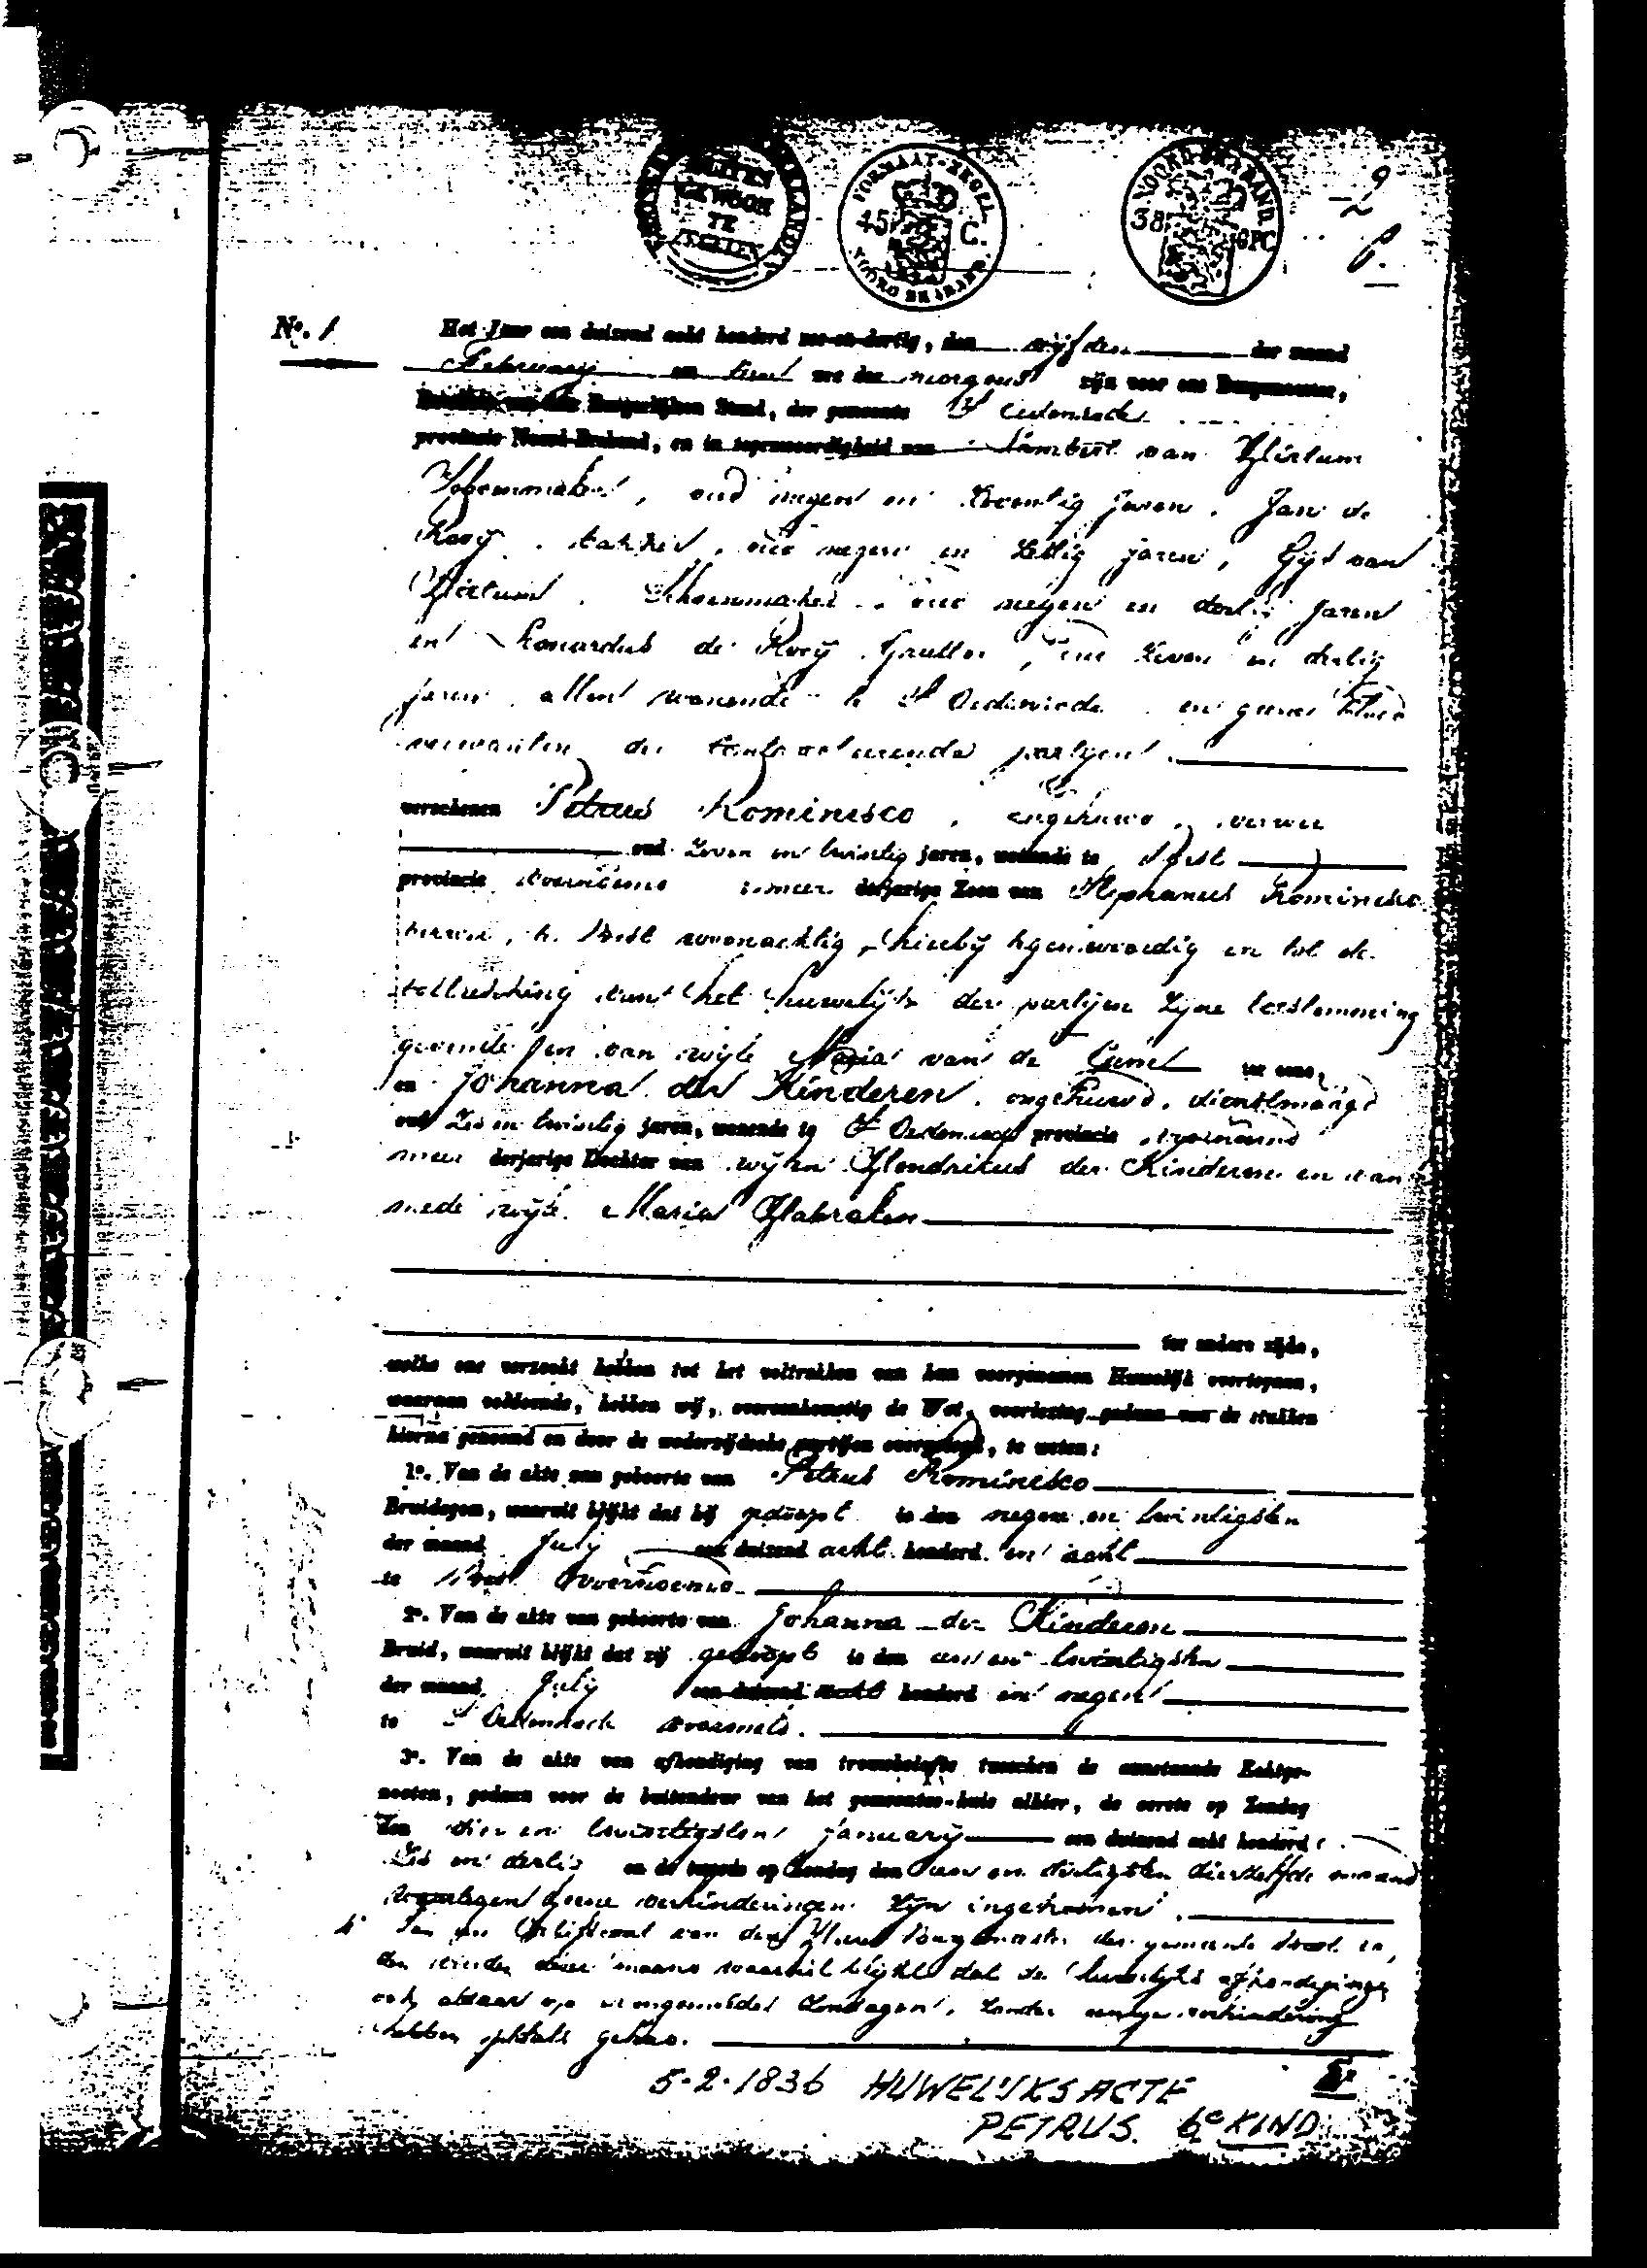 FORMAAT-ZEGEL
45 C.
NOORD BRABAND
NOORD-BRABAND
38 OPC
No. 1 Het Jaar een duizend acht honderd zes-en-dertig, den vijfden der maand
February om tien ure des morgens zijn voor ons Burgemeester,
Burgerlijken Stand, der gemeente St Oedenrode
provincie Noord-Braband, en in tegenwoordigheid van Lambert van Hirtum
Schoenmaker, oud negen en twentig jaren, Jan de
Rooij, bakker, oud negen en zestig jaren, Gijt van
Hirtum, Schoenmaker, oud negen en dertig jaren
en Leonardus de Rooij, oud zeven en dertig
jaren, allen wonende te St Oedenrode, en geene bloed
verwanten der contracterende partijen.
verschenen Petrus Rominesco, ongehuwd, wever
oud zeven en twintig jaren, wonende te Best
provincie voornoemd meer derjarige Zoon van Stephanus Rominesco
wever, te Best woonachtig, hierbij tegenwoordig en tot de
voltrekking van het huwelijk der partijen zijne toestemming
gevende en van wijle Maria van de ter eene,
en Johanna der Kinderen, ongehuwd, dienstmaagd
oud zes en twintig jaren, wonende te St Oedenrode provincie voornoemd
meer derjarige Dochter van wijlen Hendrikus der Kinderen en van
mede wijle Maria Habraken
ter andere zijde,
welke ons verzocht hebben tot het voltrekken van hun voorgenomen Huwelijk overtegaan,
waaraan voldoende, hebben wij, overeenkomstig de Wet, voorlezing gedaan van de stukken
hierna genoemd en door de wederzijdsche partijen overgelegd, te weten:
1o. Van de akte van geboorte van Petrus Rominesco
Bruidegom, waaruit blijkt dat hij gedoopt is den negen en twintigsten
der maand July een duizend acht honderd en acht
te Best voornoemd
2o. Van de akte van geboorte van Johanna der Kinderen
Bruid, waaruit blijkt dat zij gedoopt is den een en twintigsten
der maand July een duizend acht honderd en negen
te St Oedenrode voormeld.
3o. Van de akte van afkondiging van trouwbelofte tusschen de aanstaande Echtge-
nooten, gedaan voor de buitendeur van het gemeente-huis alhier, de eerste op Zondag
den vier en twintigsten January een duizend acht honderd
zes en dertig en de tweede op Zondag den een en dertigsten dierzelfde maand
waartegen geene verhinderingen zijn ingekomen.
4o van den Heer Burgemeester der gemeente Best
den dezer maand waaruit blijkt dat de huwelijks afkondigingen
ook aldaar op Zondagen, zonder eenige verhindering
hebben plaats gehad.
5-2-1836 HUWELIJKSACTE
PETRUS. 6e KIND